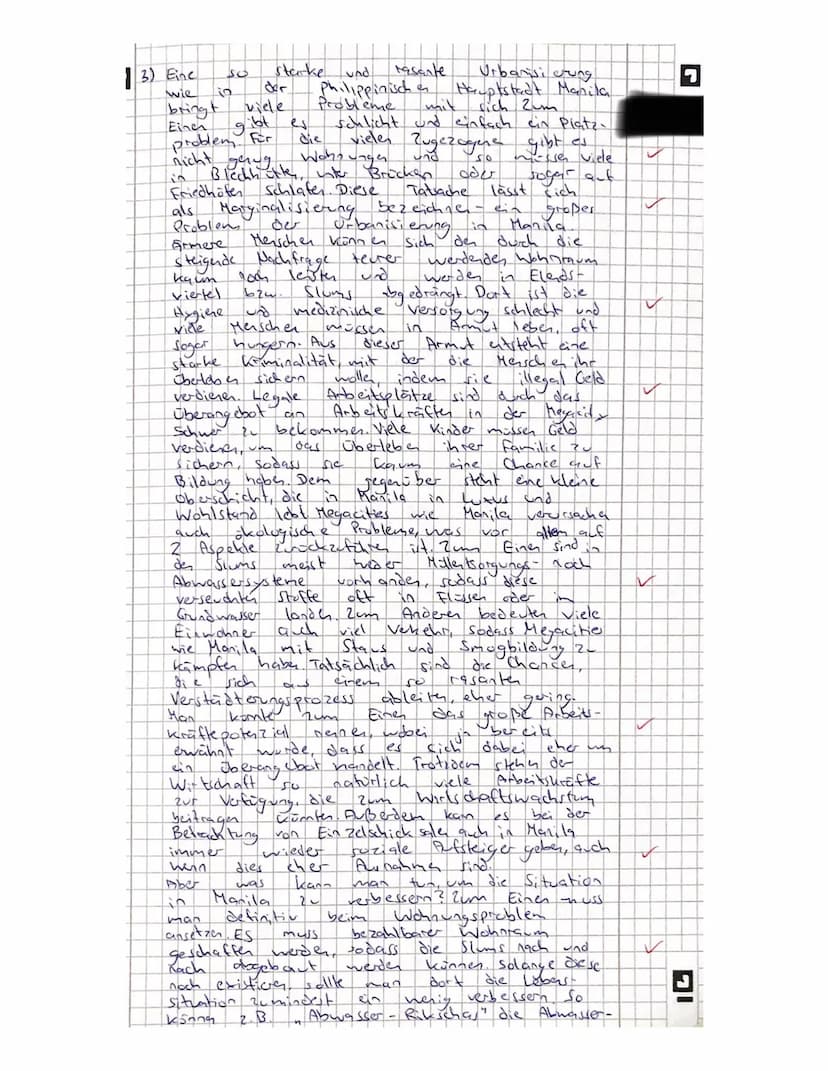 3) Eine so starke und rasante Urbanisierung
wie in der Philippinischen Hauptstadt Manila
bringt viele Probleme mit sich. Zum
Einen gibt es schlicht und einfach ein Platz-
problem. Für die vielen Zugezogene gibt es
nicht genug Wohnungen und so müssen viele
in Blechhütten, unter Brücken oder sogar auf
Friedhöfen schlafen. Diese Tatsache lässt sich
als Marginalisierung bezeichnen - ein großes
Problem der Urbanisierung in Manila.
Ärmere Menschen können sich den durch die
steigende Nachfrage teurer werdenden Wohnraum
kaum noch leisten und werden in Elends-
viertel bzw. Slums abgedrängt. Dort ist die
Hygiene und medizinische Versorgung schlecht und
viele Menschen müssen in Armut leben, oft
sogar hungern. Aus dieser Armut entsteht eine
starke Kriminalität, mit der die Menschen ihr
Überleben sichern wollen, indem sie illegal Geld
verdienen. Legale Arbeitsplätze sind durch das
Überangebot an Arbeitskräften in der Megacity
schwer zu bekommen. Viele Kinder müssen Geld
verdienen, um das Überleben ihrer Familie zu
sichern, sodass sie kaum eine Chance auf
Bildung haben. Dem gegenüber steht eine kleine
Oberschicht, die in Manila in Luxus und
Wohlstand lebt. Megacities wie Manila verursachen
auch ökologische Probleme, was vor allem auf
2 Aspekte zurückzuführen ist. Zum Einen sind in
den Slums meist weder Müllentsorgungs- noch
Abwassersysteme vorhanden, sodass diese
verseuchten Stoffe oft in Flüssen oder im
Grundwasser landen. Zum Anderen bedeuten viele
Einwohner auch viel Verkehr, sodass Megacities
wie Manila mit Staus und Smogbildung zu
kämpfen haben. Tatsächlich sind die Chancen,
die sich aus einem so rasanten
Verstädterungsprozess ableiten, eher gering.
Man könnte zum Einen das große Arbeits-
kräftepotenzial nennen, wobei ja bereits
erwähnt wurde, dass es sich dabei eher um
ein Überangebot handelt. Trotzdem stehen der
Wirtschaft so natürlich viele Arbeitskräfte
zur Verfügung, die zum Wirtschaftswachstum
beitragen könnten. Außerdem kann es bei der
Betrachtung von Einzelschicksalen auch in Manila
immer wieder soziale Aufsteiger geben, auch
wenn dies eher Ausnahmen sind.
Aber was kann man tun, um die Situation
in Manila zu verbessern? Zum Einen muss
man definitiv beim Wohnungsproblem
ansetzen. Es muss bezahlbarer Wohnraum
geschaffen werden, sodass die Slums nach und
nach abgebaut werden können. Solange diese
noch existieren, sollte man dort die Lebens-
situation zumindest ein wenig verbessern. So
können z.B. "Abwasser-Rikschas" die Abwasser-